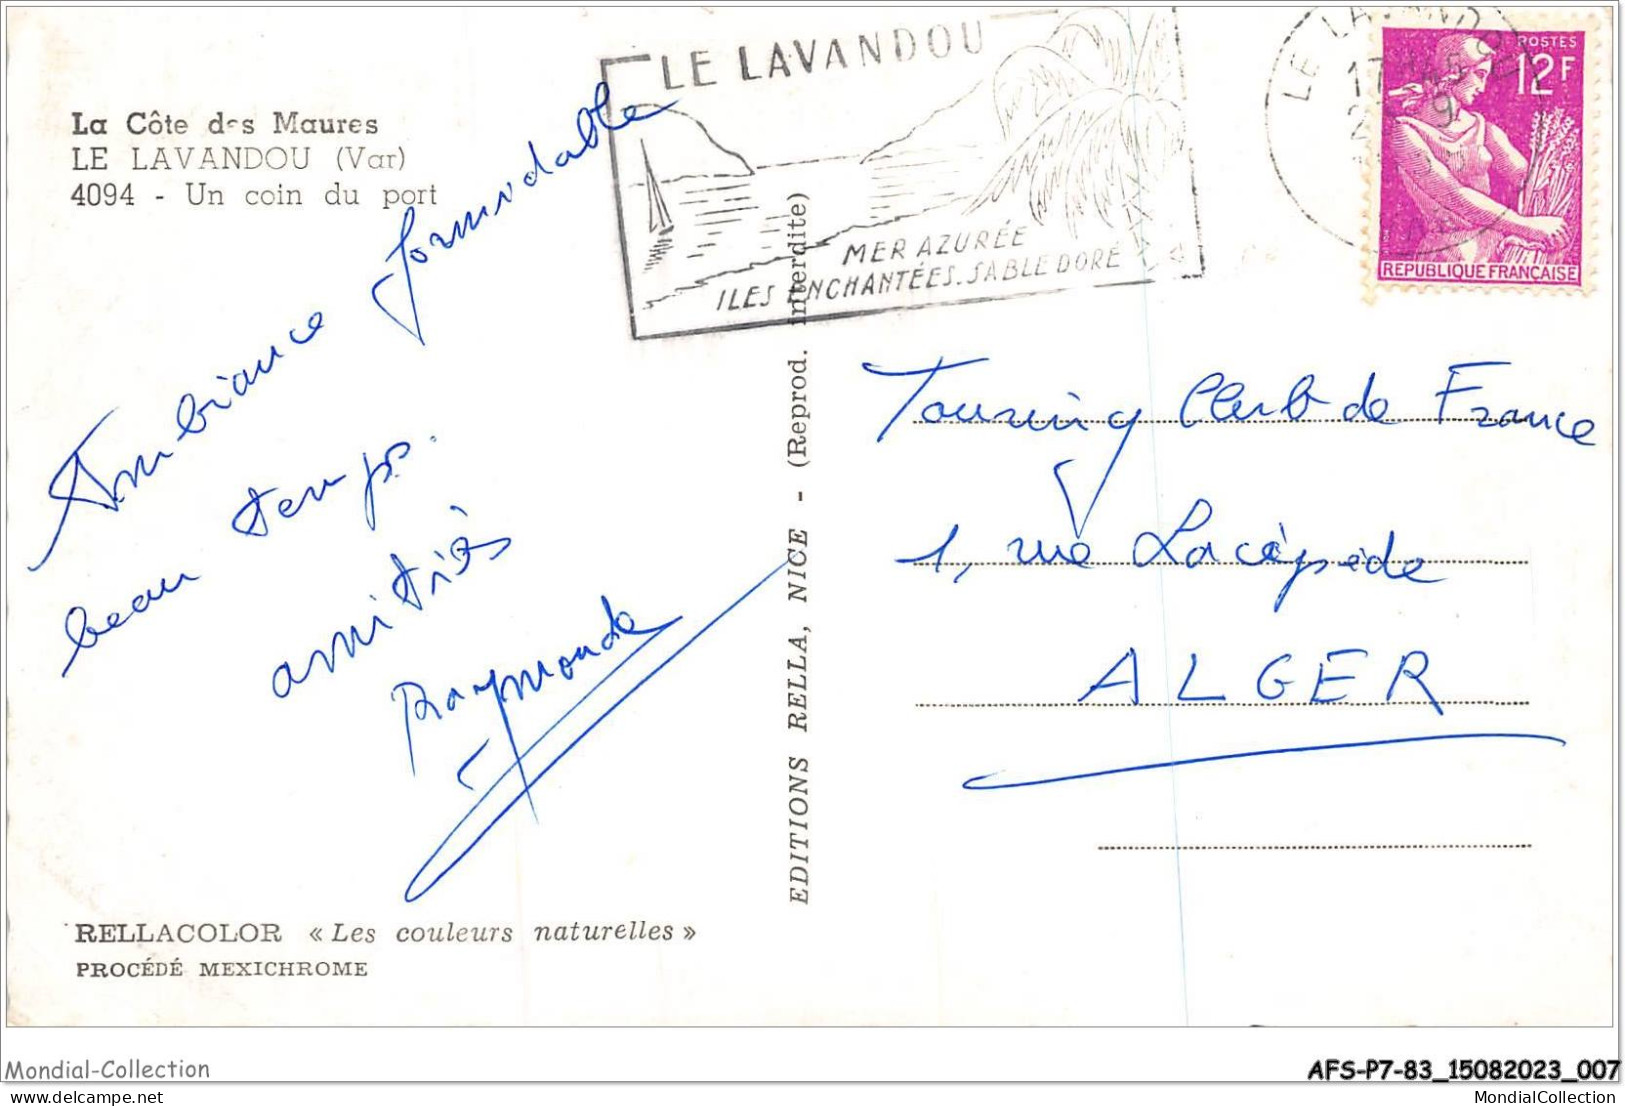 La Côte des Maures
LE LAVANDOU (Var)
4094 - Un coin du port
Ambiance formidable
beau temps.
amitiés
Raymonde
RELLACOLOR « Les couleurs naturelles »
PROCÉDÉ MEXICHROME
EDITIONS RELLA, NICE - (Reprod. interdite)
LE LAVANDOU
MER AZURÉE
ILES ENCHANTÉES. SABLE DORÉ
POSTES
12F
REPUBLIQUE FRANÇAISE
Touring Club de France
1, rue Lacépède
ALGER
Mondial-Collection
AFS-P7-83_15082023_007
MondialCollection